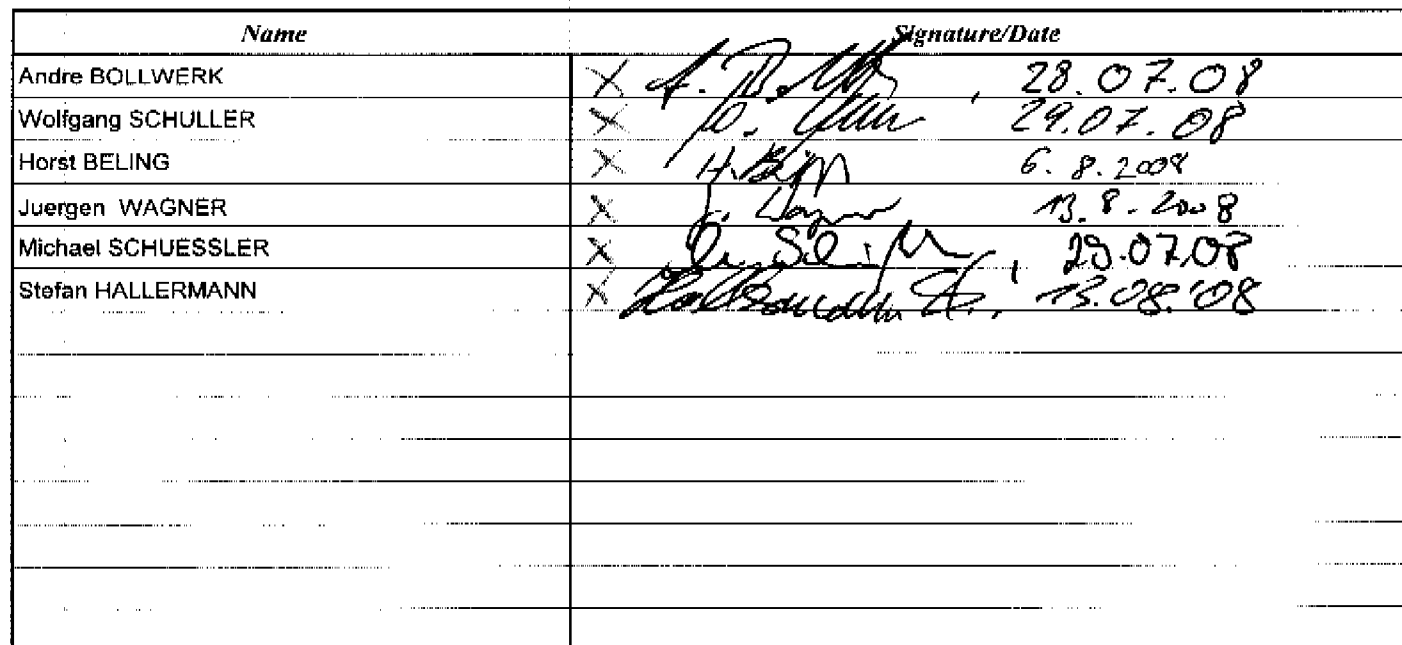 Name Signature/Date
Andre BOLLWERK X A. Boll , 28.07.08
Wolfgang SCHULLER X W. 29.07.08
Horst BELING X H. 6. 8. 2008
Juergen WAGNER X J. Wagner 13. 8. 2008
Michael SCHUESSLER X 29.07.08
Stefan HALLERMANN X Hallermann St., 13.08.'08